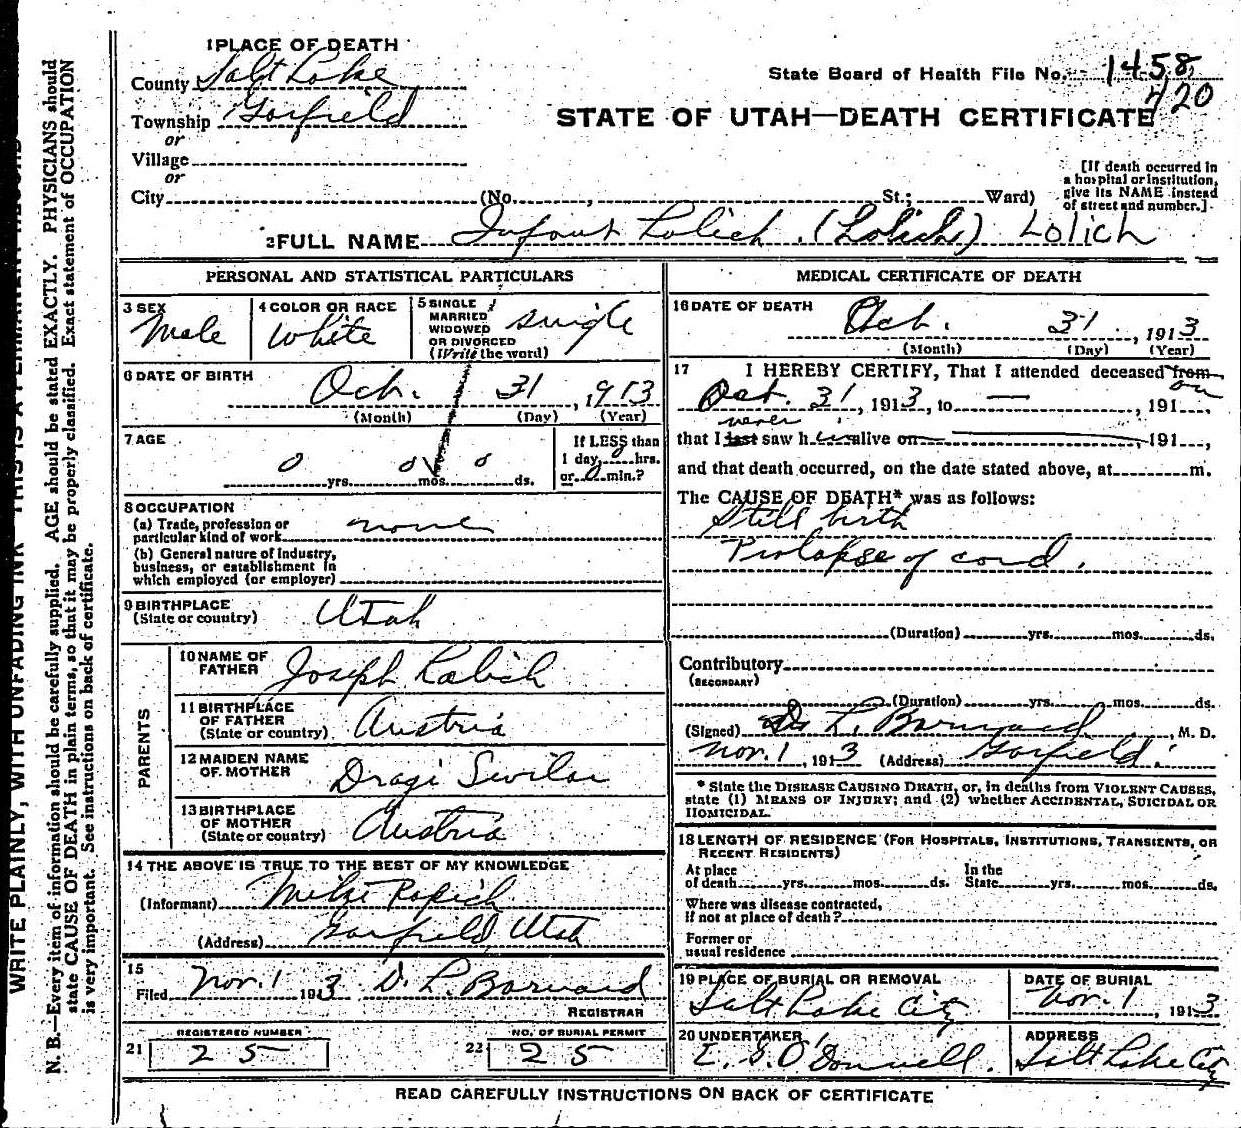 1 PLACE OF DEATH
County Salt Lake
State Board of Health File No. 1458
420
Township Garfield
STATE OF UTAH—DEATH CERTIFICATE
or
Village
or
City (No. , St.; Ward)
[If death occurred in
a hospital or institution,
give its NAME instead
of street and number.]
2 FULL NAME Infant Lolich (Lolich) Lolich
PERSONAL AND STATISTICAL PARTICULARS
3 SEX
Male
4 COLOR OR RACE
White
5 SINGLE
MARRIED
WIDOWED
OR DIVORCED
(Write the word)
single
6 DATE OF BIRTH
Oct. 31, 1913
(Month) (Day) (Year)
7 AGE
0 yrs. 0 mos. 0 ds.
If LESS than
1 day, 0 hrs.
or 0 min.?
8 OCCUPATION
(a) Trade, profession or
particular kind of work none
(b) General nature of industry,
business, or establishment in
which employed (or employer)
9 BIRTHPLACE
(State or country) Utah
PARENTS
10 NAME OF
FATHER Joseph
11 BIRTHPLACE
OF FATHER
(State or country) Austria
12 MAIDEN NAME
OF MOTHER Dragi
13 BIRTHPLACE
OF MOTHER
(State or country) Austria
14 THE ABOVE IS TRUE TO THE BEST OF MY KNOWLEDGE
(Informant) Mike Popich
(Address) Garfield, Utah
15
Filed Nov. 1 1913 D. L. Barnard
REGISTRAR
REGISTERED NUMBER
21 25
NO. OF BURIAL PERMIT
22 25
MEDICAL CERTIFICATE OF DEATH
16 DATE OF DEATH
Oct. 31, 1913
(Month) (Day) (Year)
17 I HEREBY CERTIFY, That I attended deceased from
on
Oct. 31, 1913, to — , 191 ,
never
that I last saw h alive on , 191 ,
and that death occurred, on the date stated above, at m.
The CAUSE OF DEATH* was as follows:
Still birth
Prolapse of cord.
(Duration) yrs. mos. ds.
Contributory
(SECONDARY)
(Duration) yrs. mos. ds.
(Signed) D. L. Barnard, M. D.
Nov. 1, 1913 (Address) Garfield.
* State the DISEASE CAUSING DEATH, or, in deaths from VIOLENT CAUSES,
state (1) MEANS OF INJURY; and (2) whether ACCIDENTAL, SUICIDAL OR
HOMICIDAL.
18 LENGTH OF RESIDENCE (FOR HOSPITALS, INSTITUTIONS, TRANSIENTS, OR
RECENT RESIDENTS)
At place
of death yrs. mos. ds.
In the
State yrs. mos. ds.
Where was disease contracted,
if not at place of death?
Former or
usual residence
19 PLACE OF BURIAL OR REMOVAL
Salt Lake City
DATE OF BURIAL
Nov. 1, 1913
20 UNDERTAKER
E. G. O'Donnell.
ADDRESS
Salt Lake City
READ CAREFULLY INSTRUCTIONS ON BACK OF CERTIFICATE
WRITE PLAINLY, WITH UNFADING INK THIS IS A PERMANENT RECORD
N. B.—Every item of information should be carefully supplied. AGE should be stated EXACTLY. PHYSICIANS should
state CAUSE OF DEATH in plain terms, so that it may be properly classified. Exact statement of OCCUPATION
is very important. See instructions on back of certificate.